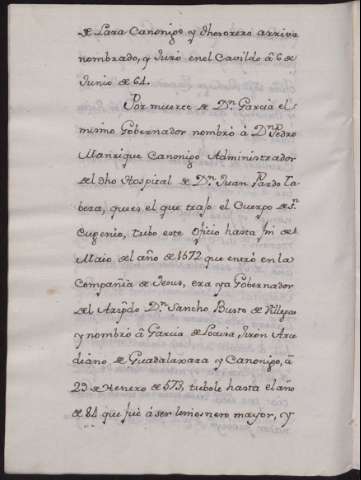 de Lara Canonigo y thesorero arriva
nombrado, y Juró en el Cavildo á 6 de
Junio de 64.
Por muerte de Dn. Garcia el
mismo Gobernador nombró á Dn. Pedro
Manrique Canonigo Administrador
del dho Hospital de Dn. Juan Pardo Ta-
bera, que es el que trajo el Cuerpo de Sn.
Eugenio, tubo este Oficio hasta fin de
Maio de el año de 1572 que entró en la
Compañia de Jesus, era ya Gobernador
del Arzpdo Dn. Sancho Busto de Villegas
y nombró á Garcia de Loaisa, Jirón Arce-
diano de Guadalaxara y Canonigo, á
23 de Henero de 573, tubole hasta el año
de 84 que fué á ser limosnero mayor, y